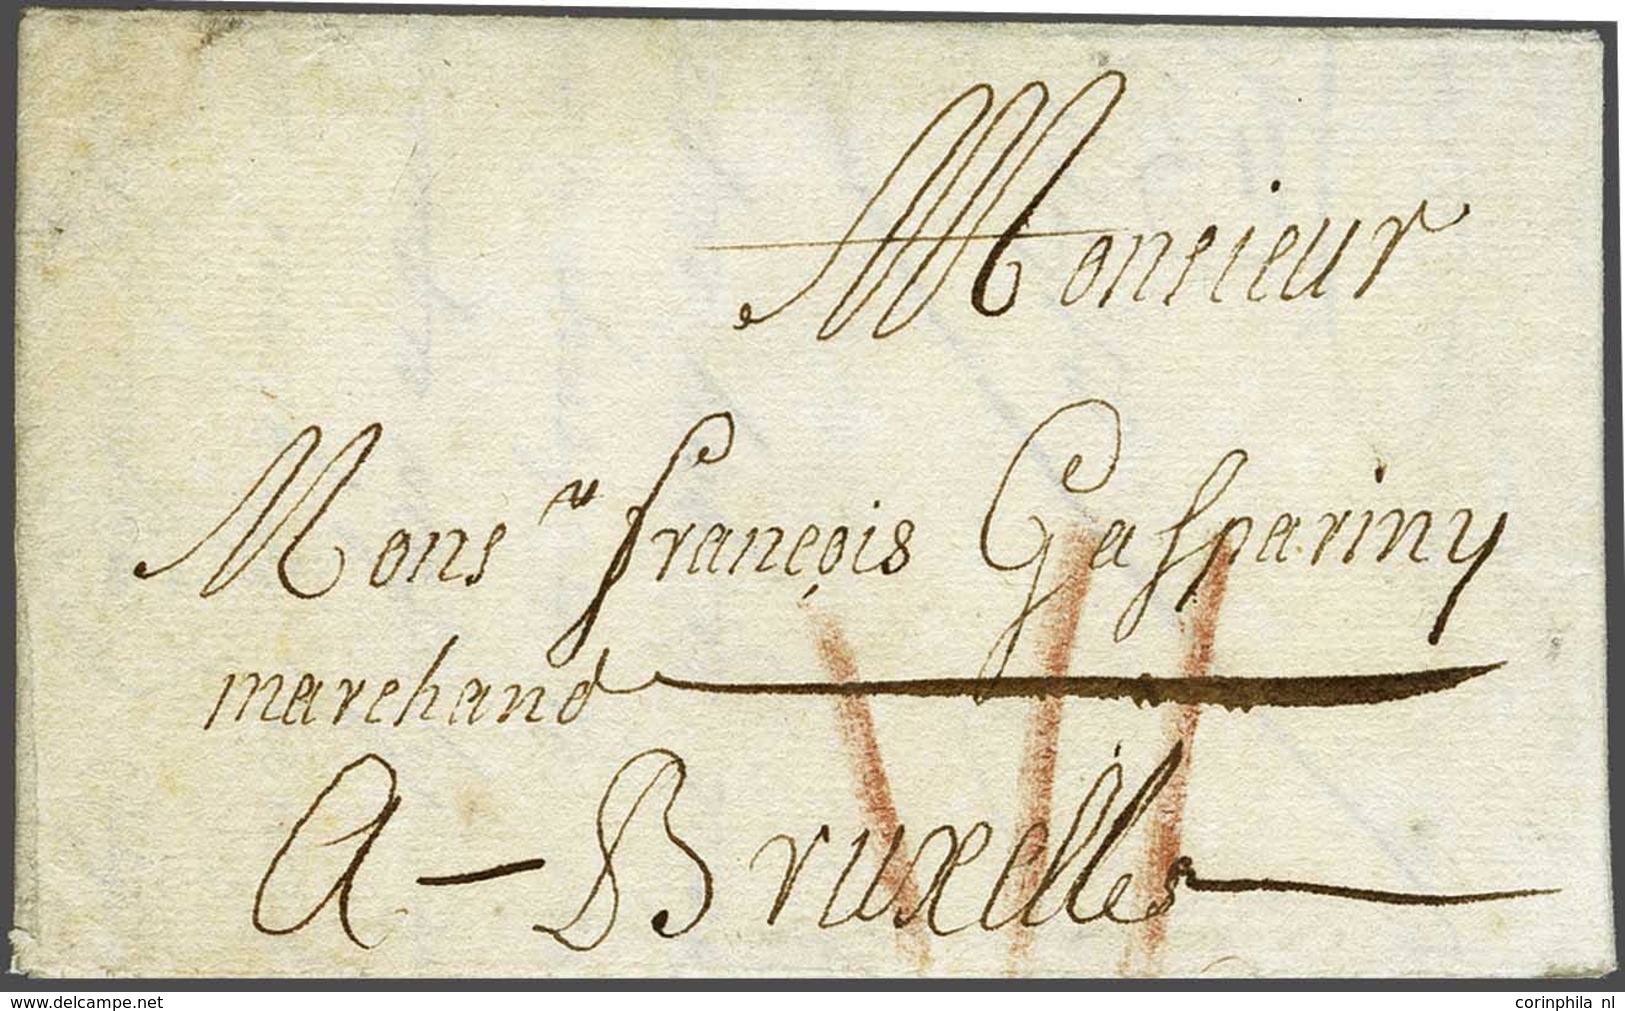 Monsieur
Mons.r françois Gaspariny
marchand
A - Bruxelles
VII
www.delcampe.net
corinphila nl